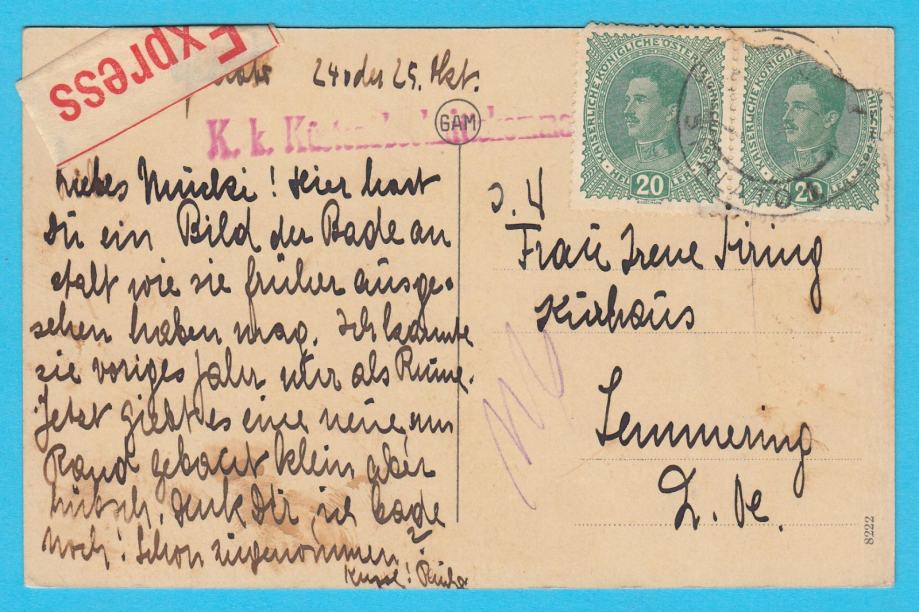 Express
24 oder 25. Okt.
K. k.
GAM
Liebes Mucki! Hier hast
Du ein Bild der Bade an
stalt wie sie früher ausge-
sehen haben mag. Ich kannte
sie voriges Jahr nur als Ruine.
Jetzt giebt es eine neue, am
Rand gebaut klein aber
hübsch. Denk Dir, ich bade
noch! Schon zugenommen?
KAISERLICHE KÖNIGLICHE ÖSTERREICHISCHE
20
KAISERLICHE KÖNIGLICHE
20
Frau Irene
Kurhaus
Semmering
8222